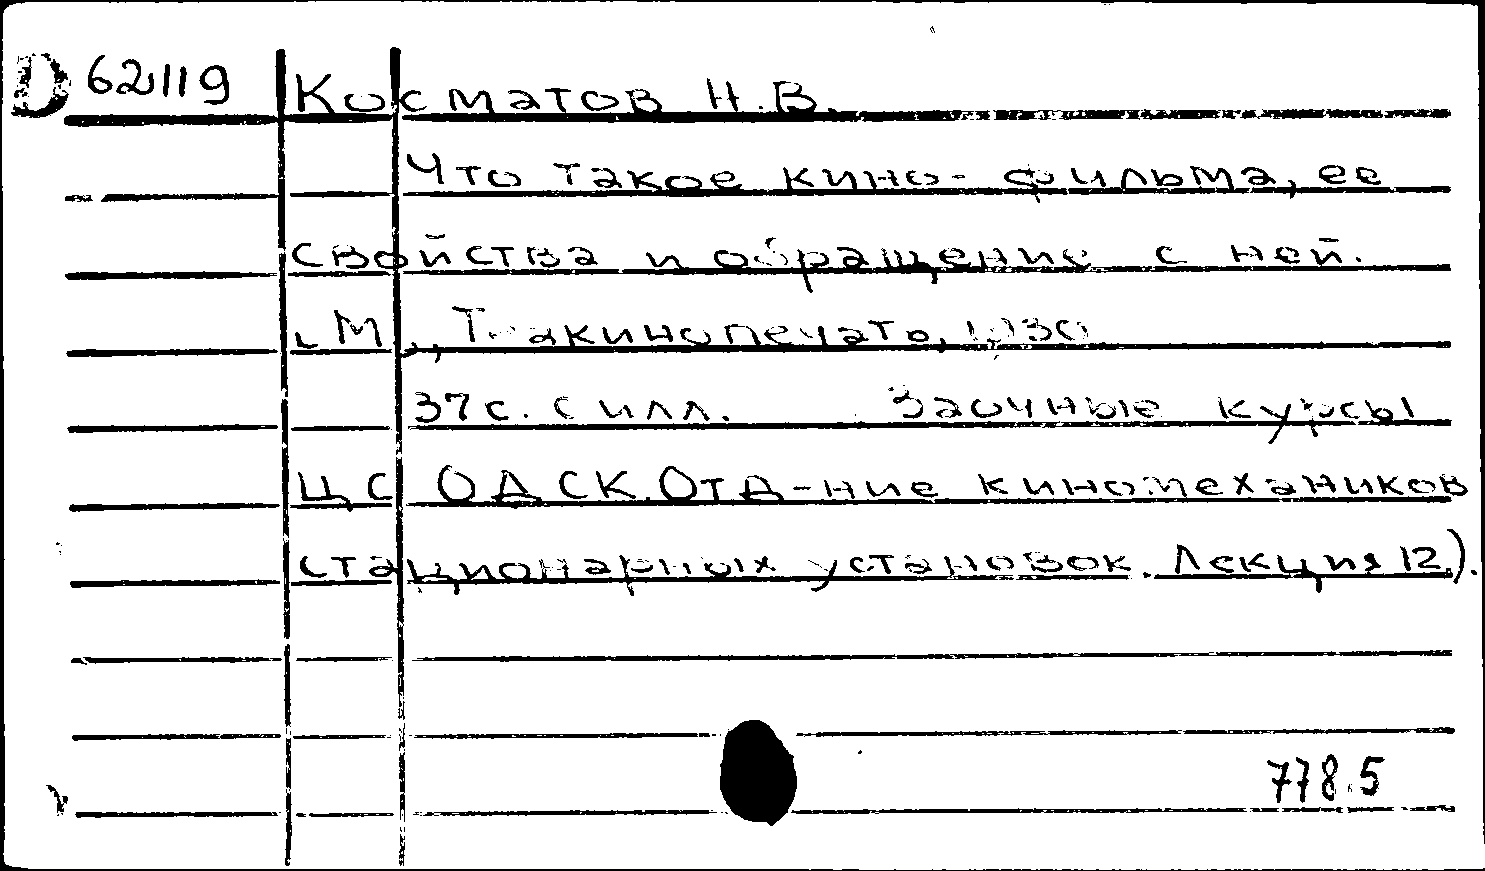 D 62119 Косматов Н.В.
Что такое кино-фильма, ее
свойства и обращение с ней.
М., Теакинопечать, 1930
37 с. с илл. Заочные курсы
ЦС ОДСК. Отд-ние киномехаников
стационарных установок. Лекция 12).
778.5